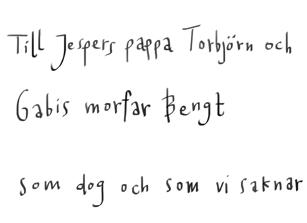 Till Jespers pappa Torbjörn och
Gabis morfar Bengt
som dog och som vi saknar